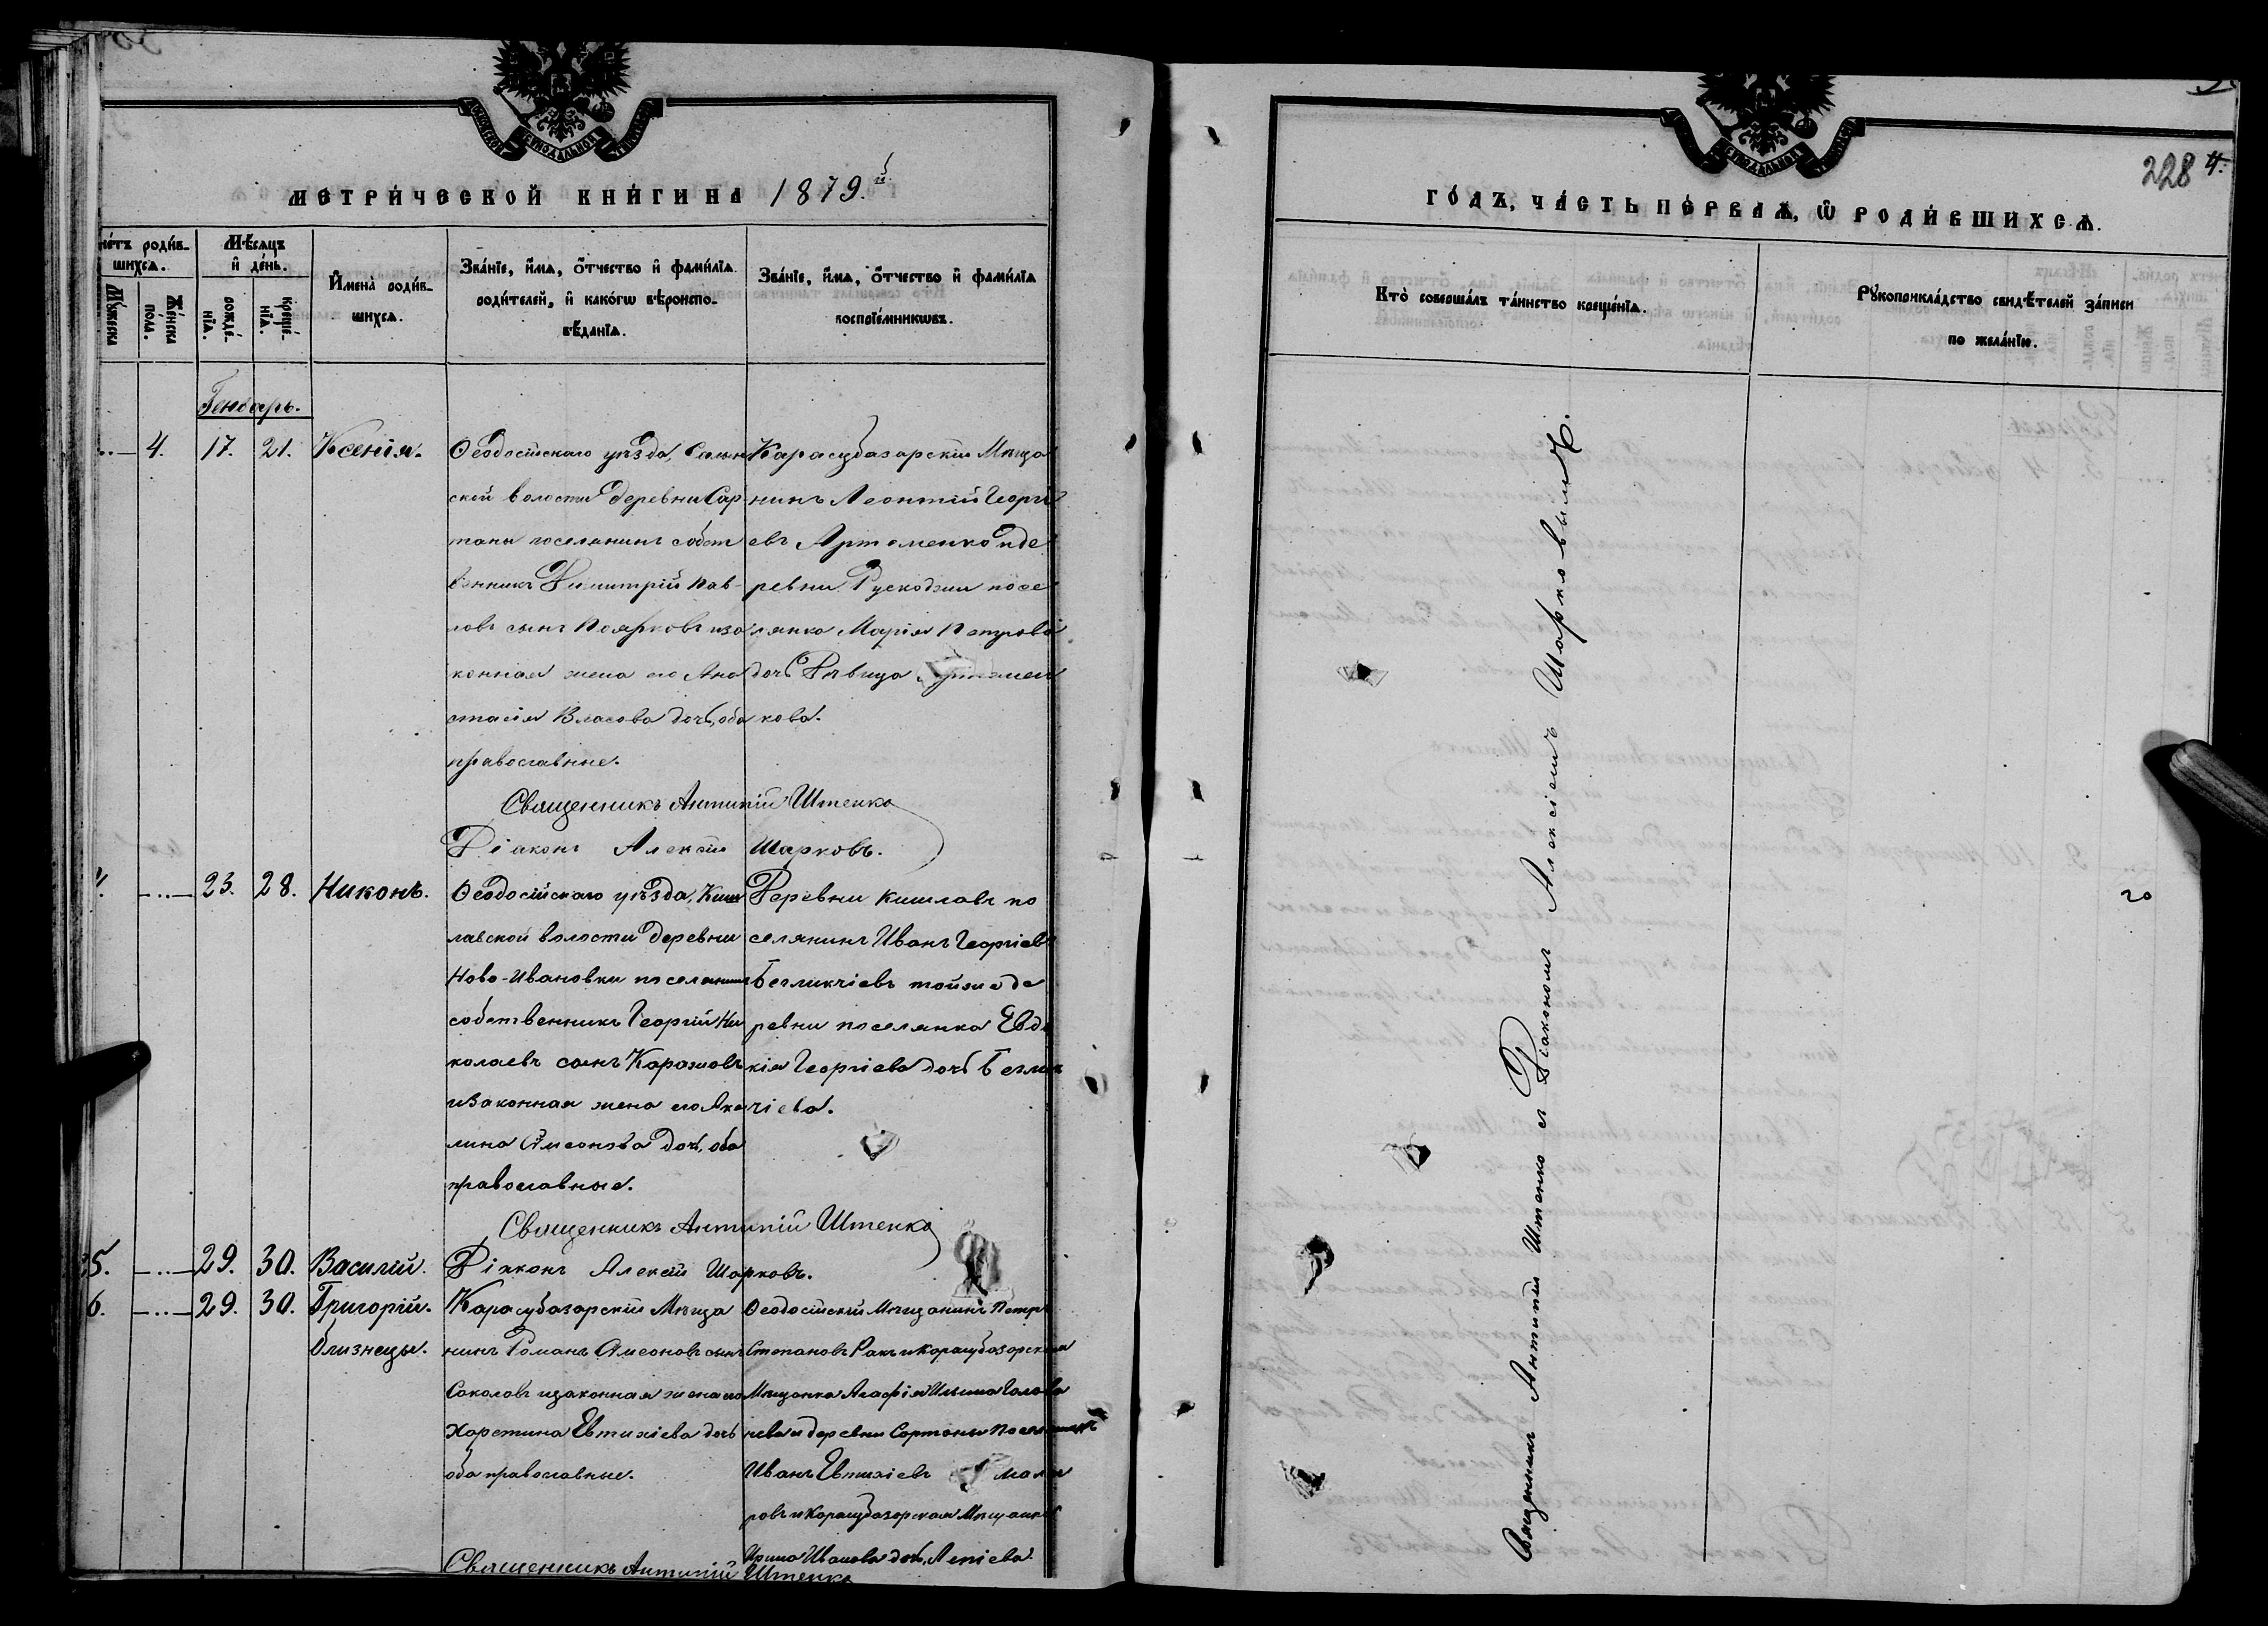 МЕТРИ́ЧЕСКОЙ КНИ́ГИ НА 1879.й
ГО́ДЪ, ЧА́СТЬ ПЕ́РВАѦ, Ѿ РОДИ́ВШИХСѦ.
228 4.
роди́в-
шихсѧ.
Мѣ́сѧцъ
и҆ де́нь.
Мꙋжеска
Же́нска
пола.
рожде́-
нїѧ.
креще́-
нїѧ.
И҆мена̀ роди́в-
шихсѧ.
Зва́нїе, и҆́мѧ, ѻ҆́тчество и҆ фами́лїѧ
роди́телей, и҆ како́гѡ вѣ̀роиспо-
вѣ́данїѧ.
Зва́нїе, и҆́мѧ, ѻ҆́тчество и҆ фами́лїѧ
воспрїе́мникѡвъ.
Кто̀ соверша́лъ та́инство креще́нїѧ.
Рꙋкоприкла́дство свидѣ́телей за́писи
по жела́нїю.
Генварь.
4. 17. 21. Ксенія.
Ѳеодосійскаго уѣзда, Салын
ской волости деревни Сар-
таны поселянинъ собст
венникъ Димитрій Пав-
ловъ сынъ Поярковъ иза
конная жена его Ана
стасія Власова дочь, оба
православные.
Карасубазарскій Мѣща
нинъ Леонтій Георгі
евъ Артеменко и де
ревни Рускоджи посе
лянка Марія Петрова
дочь Дѣвица
кова.
Священникъ Антипій Штенко
Діаконъ Алексій Шарковъ.
23. 28. Никонъ.
Ѳеодосійскаго уѣзда, Киш
лавской волости деревни
Ново-Ивановки поселянинъ
собственникъ Георгій Ни
колаевъ сынъ Каражовъ
и законная жена его Аку
лина Симеонова дочь, оба
православные.
Деревни Кишлавъ по
селянинъ Иванъ Георгіевъ
Бегликчіевъ той же де
ревни поселянка Евдо
кія Георгіева дочь Беглик
чіева.
Священникъ Антипій Штенко
Діаконъ Алексій Шарковъ.
5. 29. 30. Василій.
6. 29. 30. Григорій.
близнецы.
Карасубазарскій Мѣща
нинъ Романъ Симеоновъ сынъ
Соколовъ и законная жена его
Харетина Евтихіева дочь
оба православные.
Ѳеодосійскій Мѣщанинъ Петръ
Степановъ Ракъ и Карасубазарская
Мѣщанка Агафія Ильина Голова
нева и деревни Сартаны Поселянинъ
Иванъ Евтихіевъ
ровъ и Карасубазарская Мѣщанка
Ирина Иванова дочь, Лепіева.
Священникъ Антипій Штенко
Священникъ Антипій Штенко съ Діакономъ Алексіемъ Шарковымъ.
20